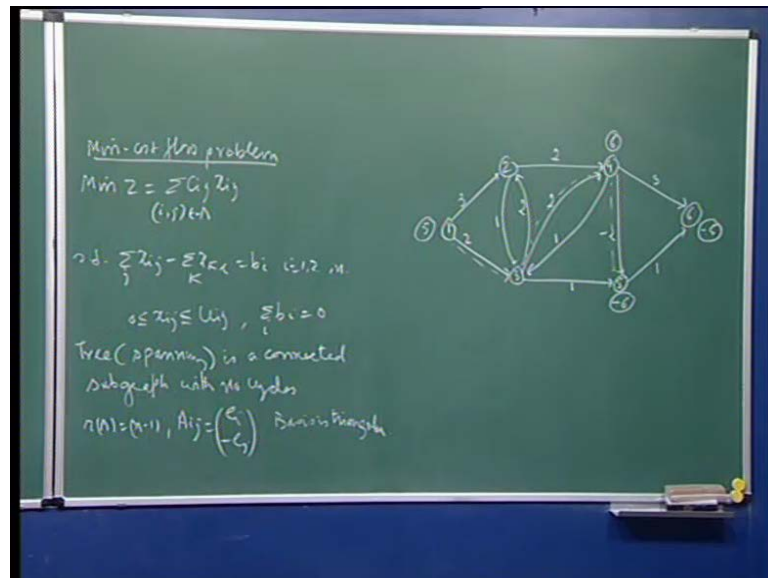 Min-cost flow problem
Min Z = Σ Cij xij
(i,j)∈A
s.t. Σ xij - Σ xki = bi i=1,2, n.
j K
0 ≤ xij ≤ Uij , Σ bi = 0
i
Tree (spanning) is a connected
subgraph with no cycles
r(A)=(n-1), Aij = (ei -ej) Basis is triangular
6
2 2 4
3 3
1 2 2 1 -2 6 -5
5 1
2 1
3 1 5
-6